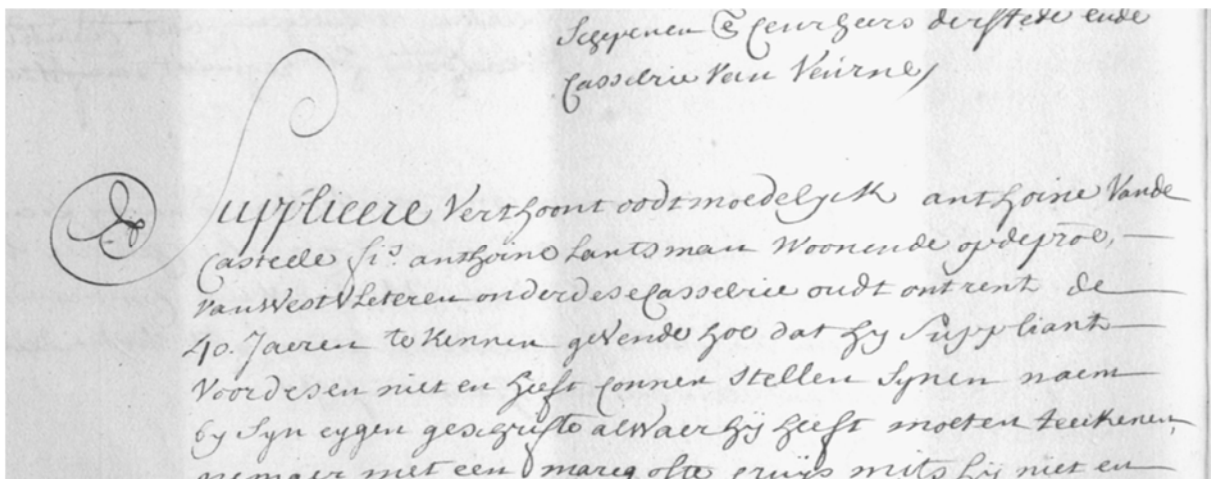 Schepenen & Ceurheers der stede ende
Casselrie van Veurne /
Supplieere Verthoont oodtmoedelyck anthoine Vande
Casteele fs. anthoine Lantsman Woonende op de proe,
van West Vleteren onder dese Casselrie oudt ontrent de
40. Jaeren te kennen gevende hoe dat hy Suppliant
Voor desen niet en heeft connen stellen Synen naem
by Syn eygen geschrifte alwaer hij heeft moeten teeikenen,
nemaer met een marcq ofte cruijs mits hij niet en